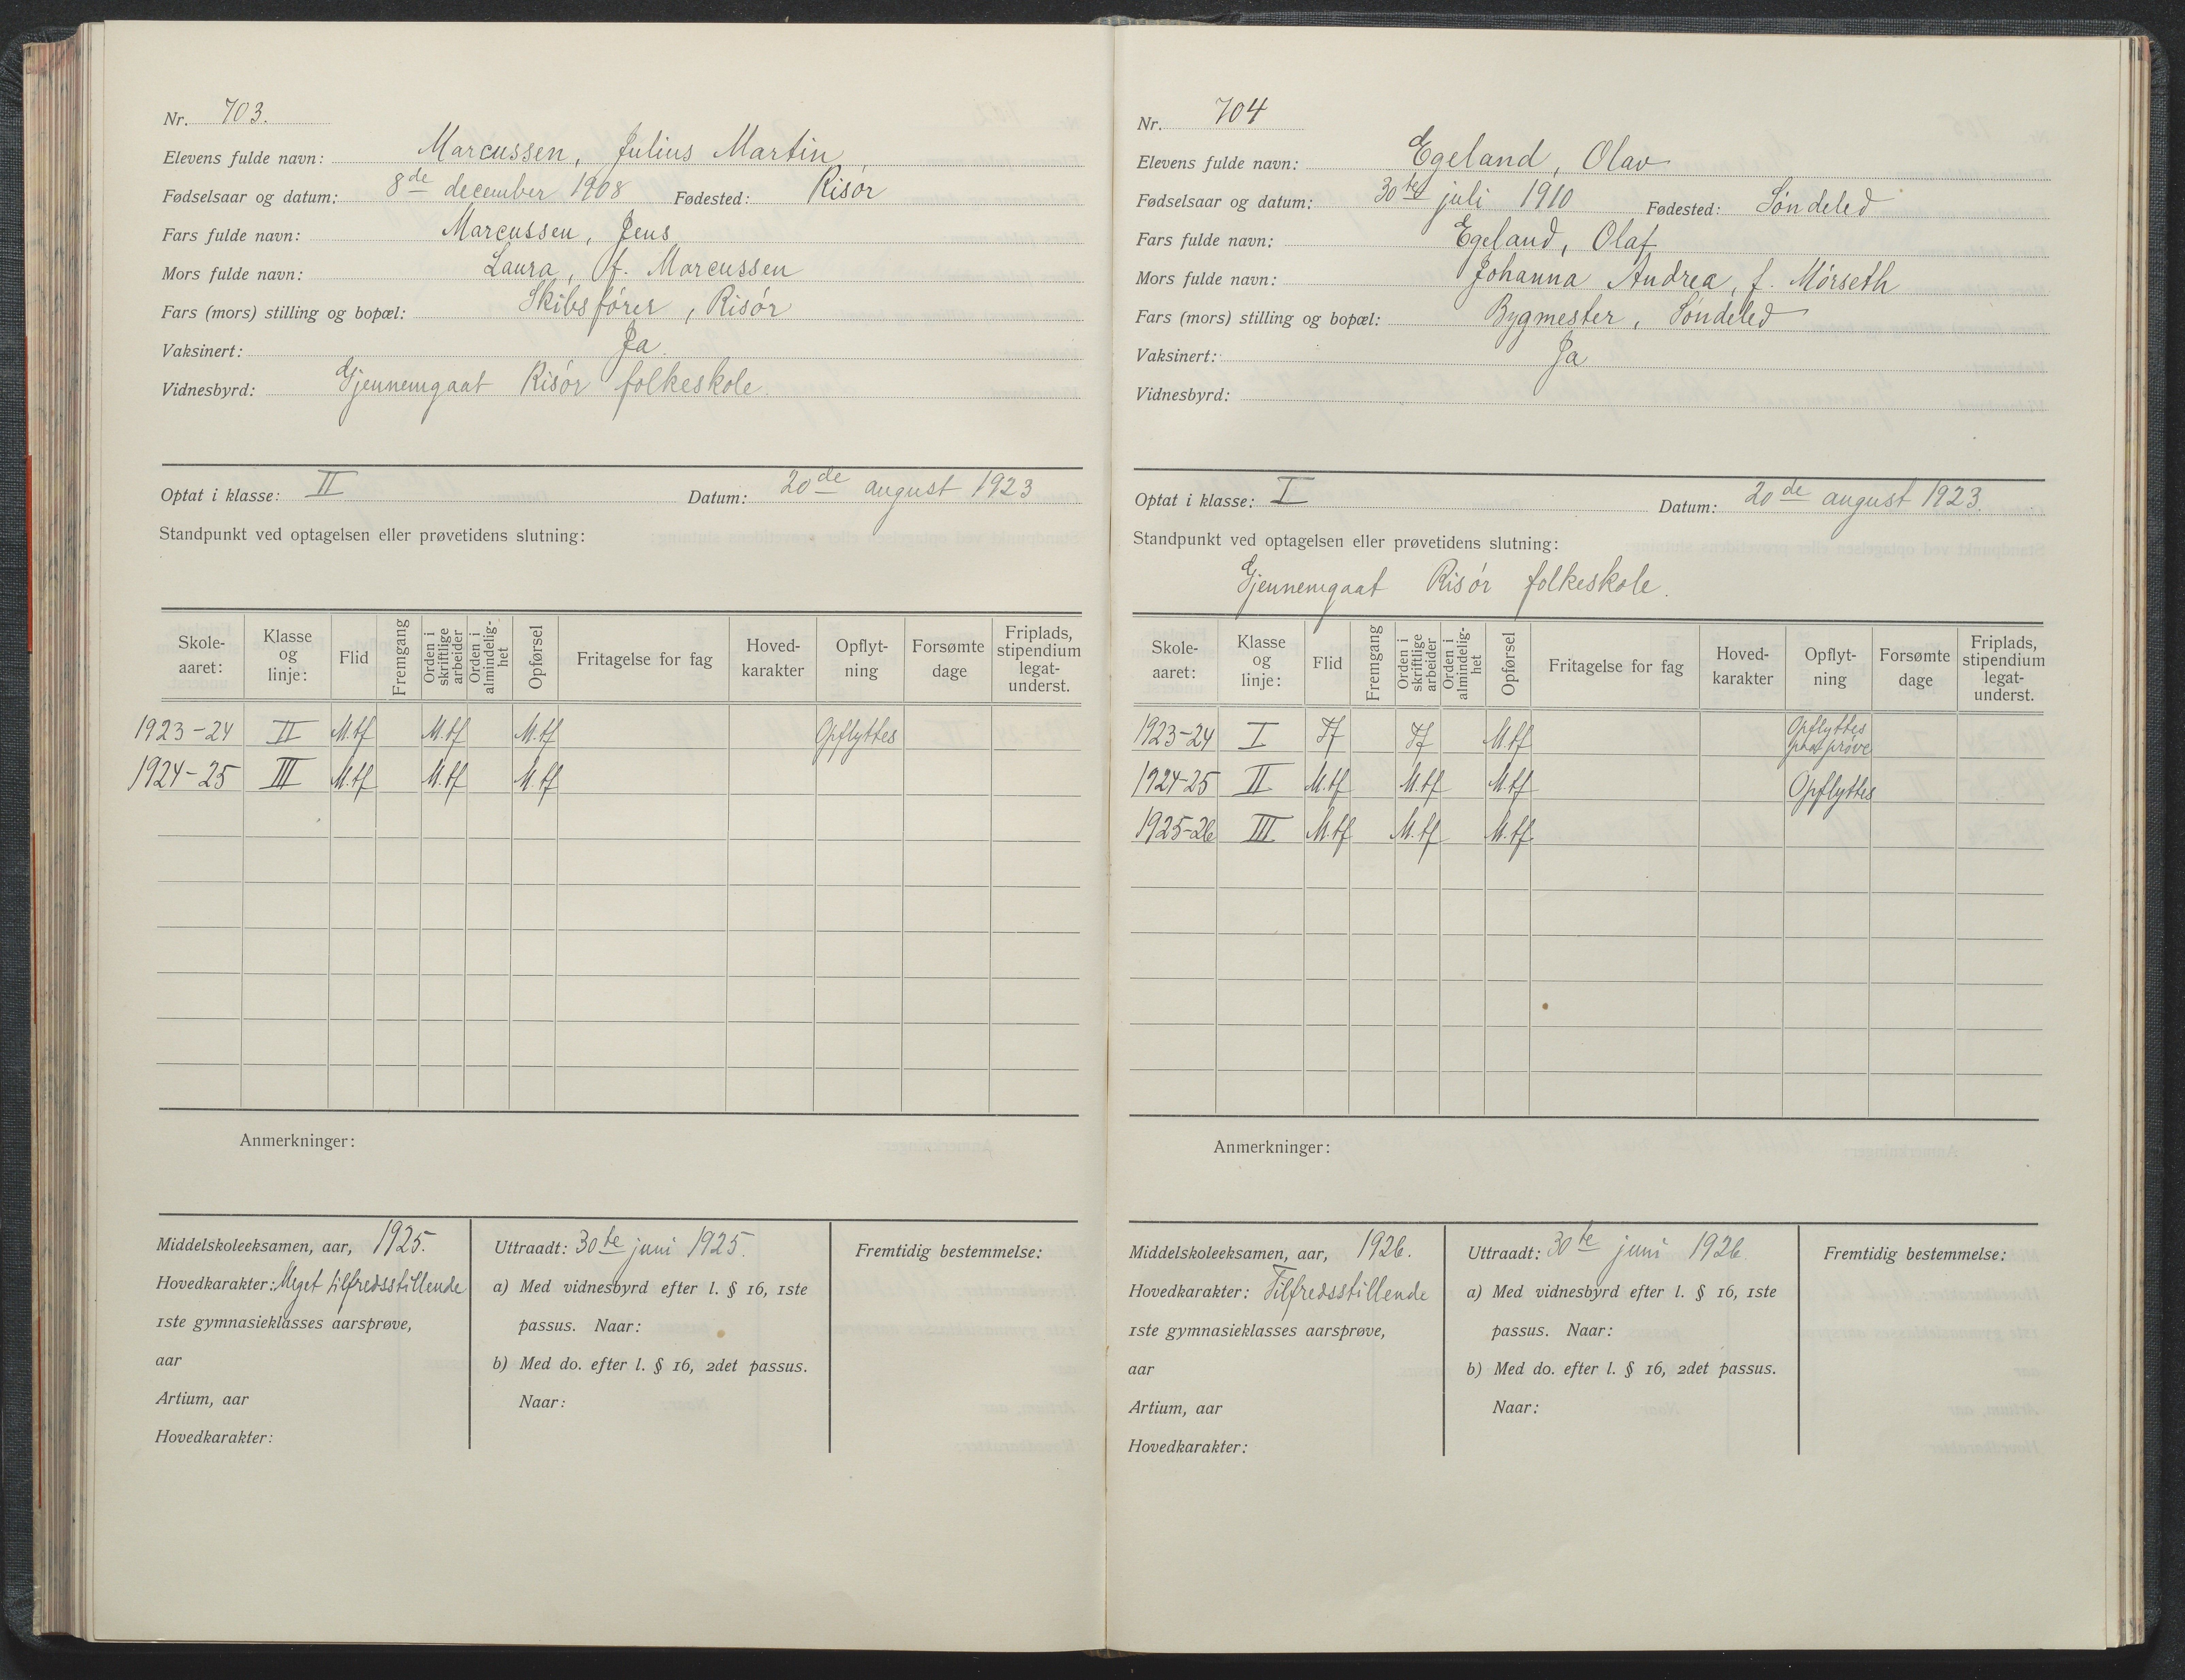 Nr. 703.
Elevens fulde navn: Marcussen, Julius Martin
Fødselsaar og datum: 8de december 1908 Fødested: Risør
Fars fulde navn: Marcussen, Jens
Mors fulde navn: Laura, f. Marcussen
Fars (mors) stilling og bopæl: Skibsfører, Risør
Vaksinert: Ja.
Vidnesbyrd: Gjennemgaat Risør folkeskole.
Optat i klasse: II Datum: 20de august 1923
Standpunkt ved optagelsen eller prøvetidens slutning:
Skole-aaret: Klasse og linje: Flid Fremgang Orden i skriftlige arbeider Orden i almindelig-het Opførsel Fritagelse for fag Hoved-karakter Opflyt-ning Forsømte dage Friplads, stipendium legat-underst.
1923-24 II M.tf M.tf M.tf Opflyttes
1924-25 III M.tf M.tf M.tf
Anmerkninger:
Middelskoleeksamen, aar, 1925.
Hovedkarakter: Meget tilfredsstillende
1ste gymnasieklasses aarsprøve,
aar
Artium, aar
Hovedkarakter:
Uttraadt: 30te juni 1925.
a) Med vidnesbyrd efter l. § 16, 1ste
passus. Naar:
b) Med do. efter l. § 16, 2det passus.
Naar:
Fremtidig bestemmelse:
Nr. 704
Elevens fulde navn: Egeland, Olav
Fødselsaar og datum: 30te juli 1910 Fødested: Søndeled
Fars fulde navn: Egeland, Olaf
Mors fulde navn: Johanna Andrea, f. Mørseth
Fars (mors) stilling og bopæl: Bygmester, Søndeled
Vaksinert: Ja
Vidnesbyrd:
Optat i klasse: I Datum: 20de august 1923.
Standpunkt ved optagelsen eller prøvetidens slutning:
Gjennemgaat Risør folkeskole.
Skole-aaret: Klasse og linje: Flid Fremgang Orden i skriftlige arbeider Orden i almindelig-het Opførsel Fritagelse for fag Hoved-karakter Opflyt-ning Forsømte dage Friplads, stipendium legat-underst.
1923-24 I Tf Tf M.tf Opflyttes paa prøve
1924-25 II M.tf M.tf M.tf Opflyttes
1925-26 III M.tf M.tf M.tf
Anmerkninger:
Middelskoleeksamen, aar, 1926.
Hovedkarakter: Tilfredsstillende
1ste gymnasieklasses aarsprøve,
aar
Artium, aar
Hovedkarakter:
Uttraadt: 30te juni 1926.
a) Med vidnesbyrd efter l. § 16, 1ste
passus. Naar:
b) Med do. efter l. § 16, 2det passus.
Naar:
Fremtidig bestemmelse: